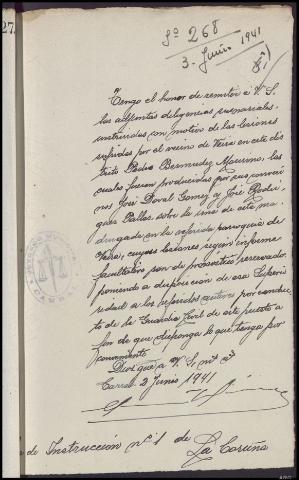 27
Sº 268
3. Junio 1941
Tengo el honor de remitir á V. S.
las adjuntas diligencias sumariales
instruidas con motivo de las lesiones
sufridas por el vecino de Veira en este dis
trito Pedro Bermudez Mourino, las
cuales fueron producidas por sus conveci
nos José Doval Gomez y José Rodri
guez Pallas, sobre la una de esta ma
drugada en la referida parroquia de
Veira, cuyas lesiones segun informe
facultativo son de pronóstico reservado.
poniendo a disposición de esa Superio
ridad a los referidos autores por conduc
to de la Guardia Civil de este puesto a
fin de que disponga lo que tenga por
conveniente.
Dios gue a V. S. mº aº
Carral 2 Junio 1941
de Instrucción nº 1 de La Coruña
CARRAL